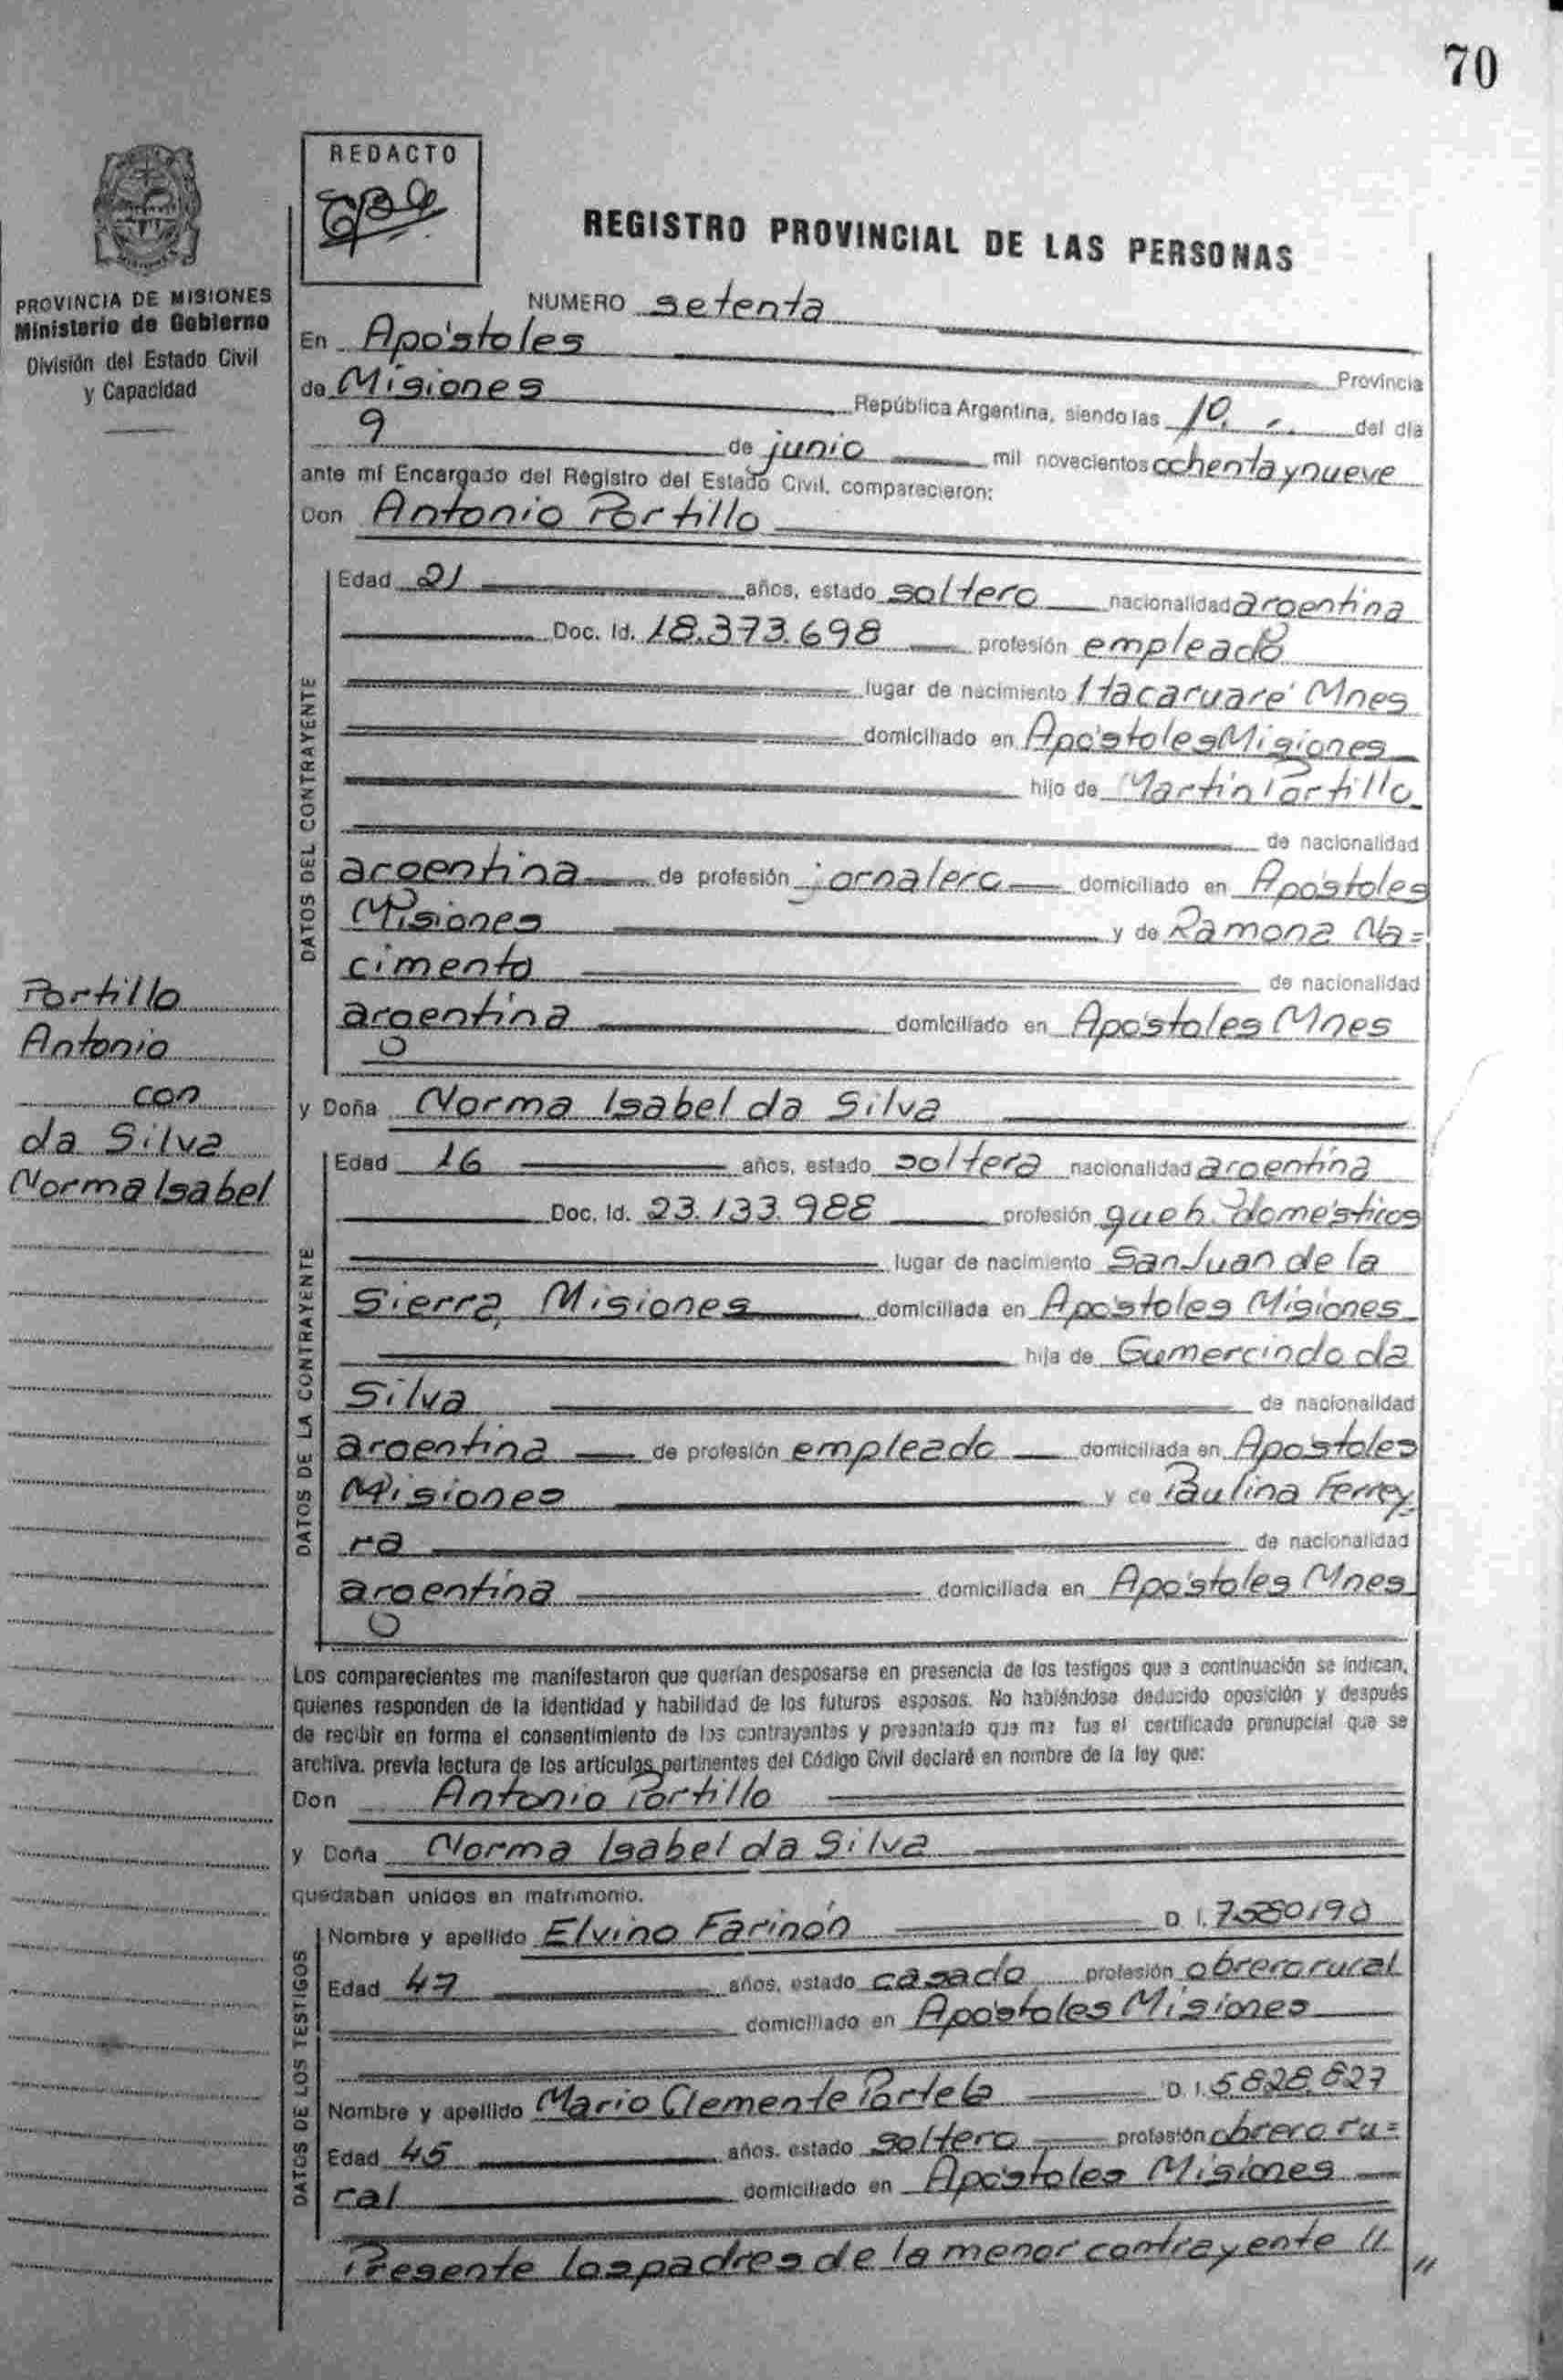 70
REDACTO
PROVINCIA DE MISIONES
Ministerio de Gobierno
División del Estado Civil
y Capacidad
REGISTRO PROVINCIAL DE LAS PERSONAS
NUMERO setenta
En Apóstoles Provincia
de Misiones República Argentina, siendo las 10 del día
9 de junio mil novecientos ochenta y nueve
ante mí Encargado del Registro del Estado Civil, comparecieron:
Don Antonio Portillo
DATOS DEL CONTRAYENTE
Edad 21 años, estado soltero nacionalidad argentina
Doc. Id. 18.373.698 profesión empleado
lugar de nacimiento Itacaruaré Mnes
domiciliado en Apóstoles Misiones
hijo de Martin Portillo
de nacionalidad
argentina de profesión jornalero domiciliado en Apóstoles
Misiones y de Ramona Na=
cimento de nacionalidad
argentina domiciliado en Apóstoles Mnes
Portillo
Antonio
con
da Silva
Norma Isabel
y Doña Norma Isabel da Silva
DATOS DE LA CONTRAYENTE
Edad 16 años, estado soltera nacionalidad argentina
Doc. Id. 23.133.988 profesión queh. domésticos
lugar de nacimiento San Juan de la
Sierra, Misiones domiciliada en Apóstoles Misiones
hija de Gumercindo da
Silva de nacionalidad
argentina de profesión empleado domiciliada en Apóstoles
Misiones y de Paulina Ferrey
ra de nacionalidad
argentina domiciliada en Apóstoles Mnes
Los comparecientes me manifestaron que querían desposarse en presencia de los testigos que a continuación se indican,
quienes responden de la identidad y habilidad de los futuros esposos. No habiéndose deducido oposición y después
de recibir en forma el consentimiento de los contrayentes y presentado que me fue el certificado prenupcial que se
archiva. previa lectura de los artículos pertinentes del Código Civil declaré en nombre de la ley que:
Don Antonio Portillo
y Doña Norma Isabel da Silva
quedaban unidos en matrimonio.
DATOS DE LOS TESTIGOS
Nombre y apellido Elvino Farinón D. I. 7.580190
Edad 47 años, estado casado profesión obrero rural
domiciliado en Apóstoles Misiones
Nombre y apellido Mario Clemente Portela D. I. 5.828.827
Edad 45 años, estado soltero profesión obrero ru=
ral domiciliado en Apóstoles Misiones
Presente los padres de la menor contrayente //
//